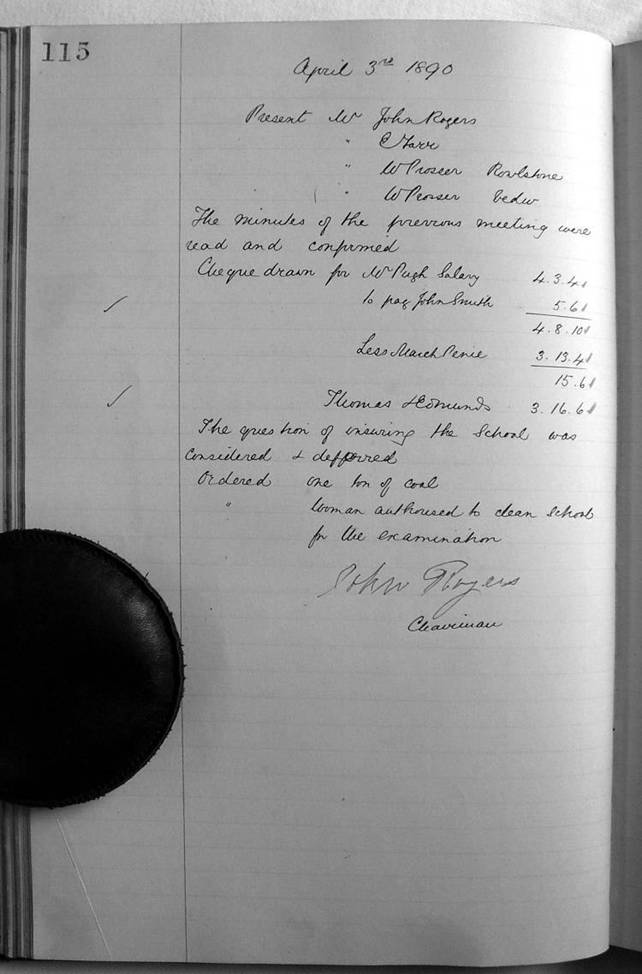 115
April 3rd 1890
Present Mr John Rogers
" C Farr
" W Prosser Rowlstone
" W Prosser bedw
The minutes of the previous meeting were
read and confirmed
Cheque drawn for Mr Pugh Salary 4.3.4
to pay John Smith 5.6
4.8.10
Less March Penie 3.13.4
15.6
Thomas Edmunds 3.16.6
The question of insuring the School was
considered & defferred
Ordered one ton of coal
" Woman authorised to clean School
for the examination
John Rogers
Chairman